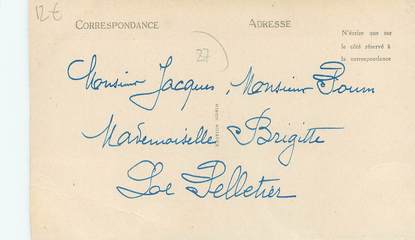 12€
CORRESPONDANCE
ADRESSE
N'écrire que sur
le côté réservé à
la correspondance
Monsieur Jacques, Monsieur Poum
Mademoiselle Brigitte
Loe Pelletier